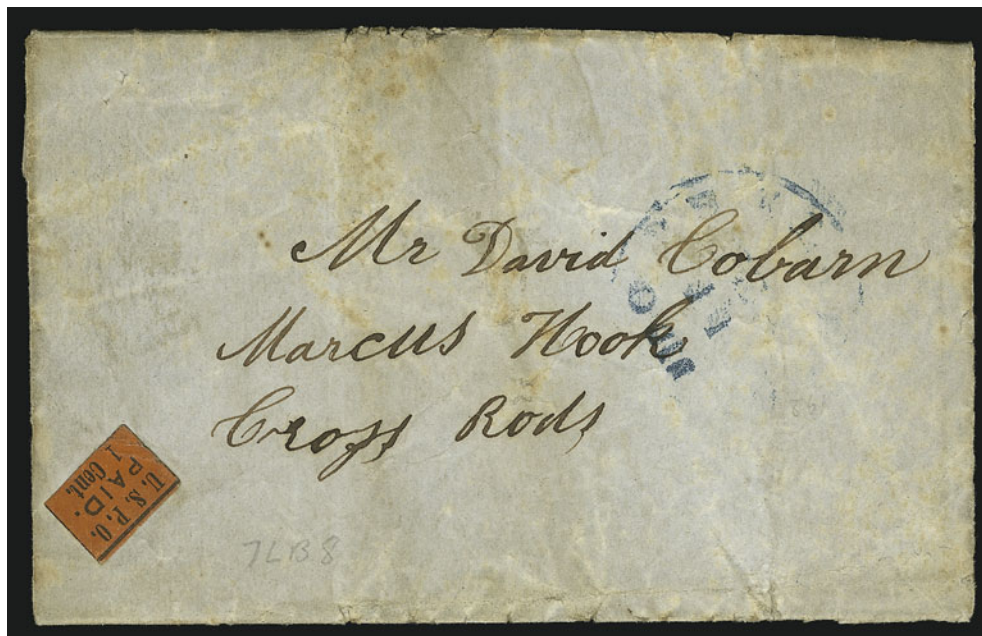 Mr David Cobarn
Marcus Hook
Cross Rods
U. S. P. O.
PAID.
1 Cent.
7LB8